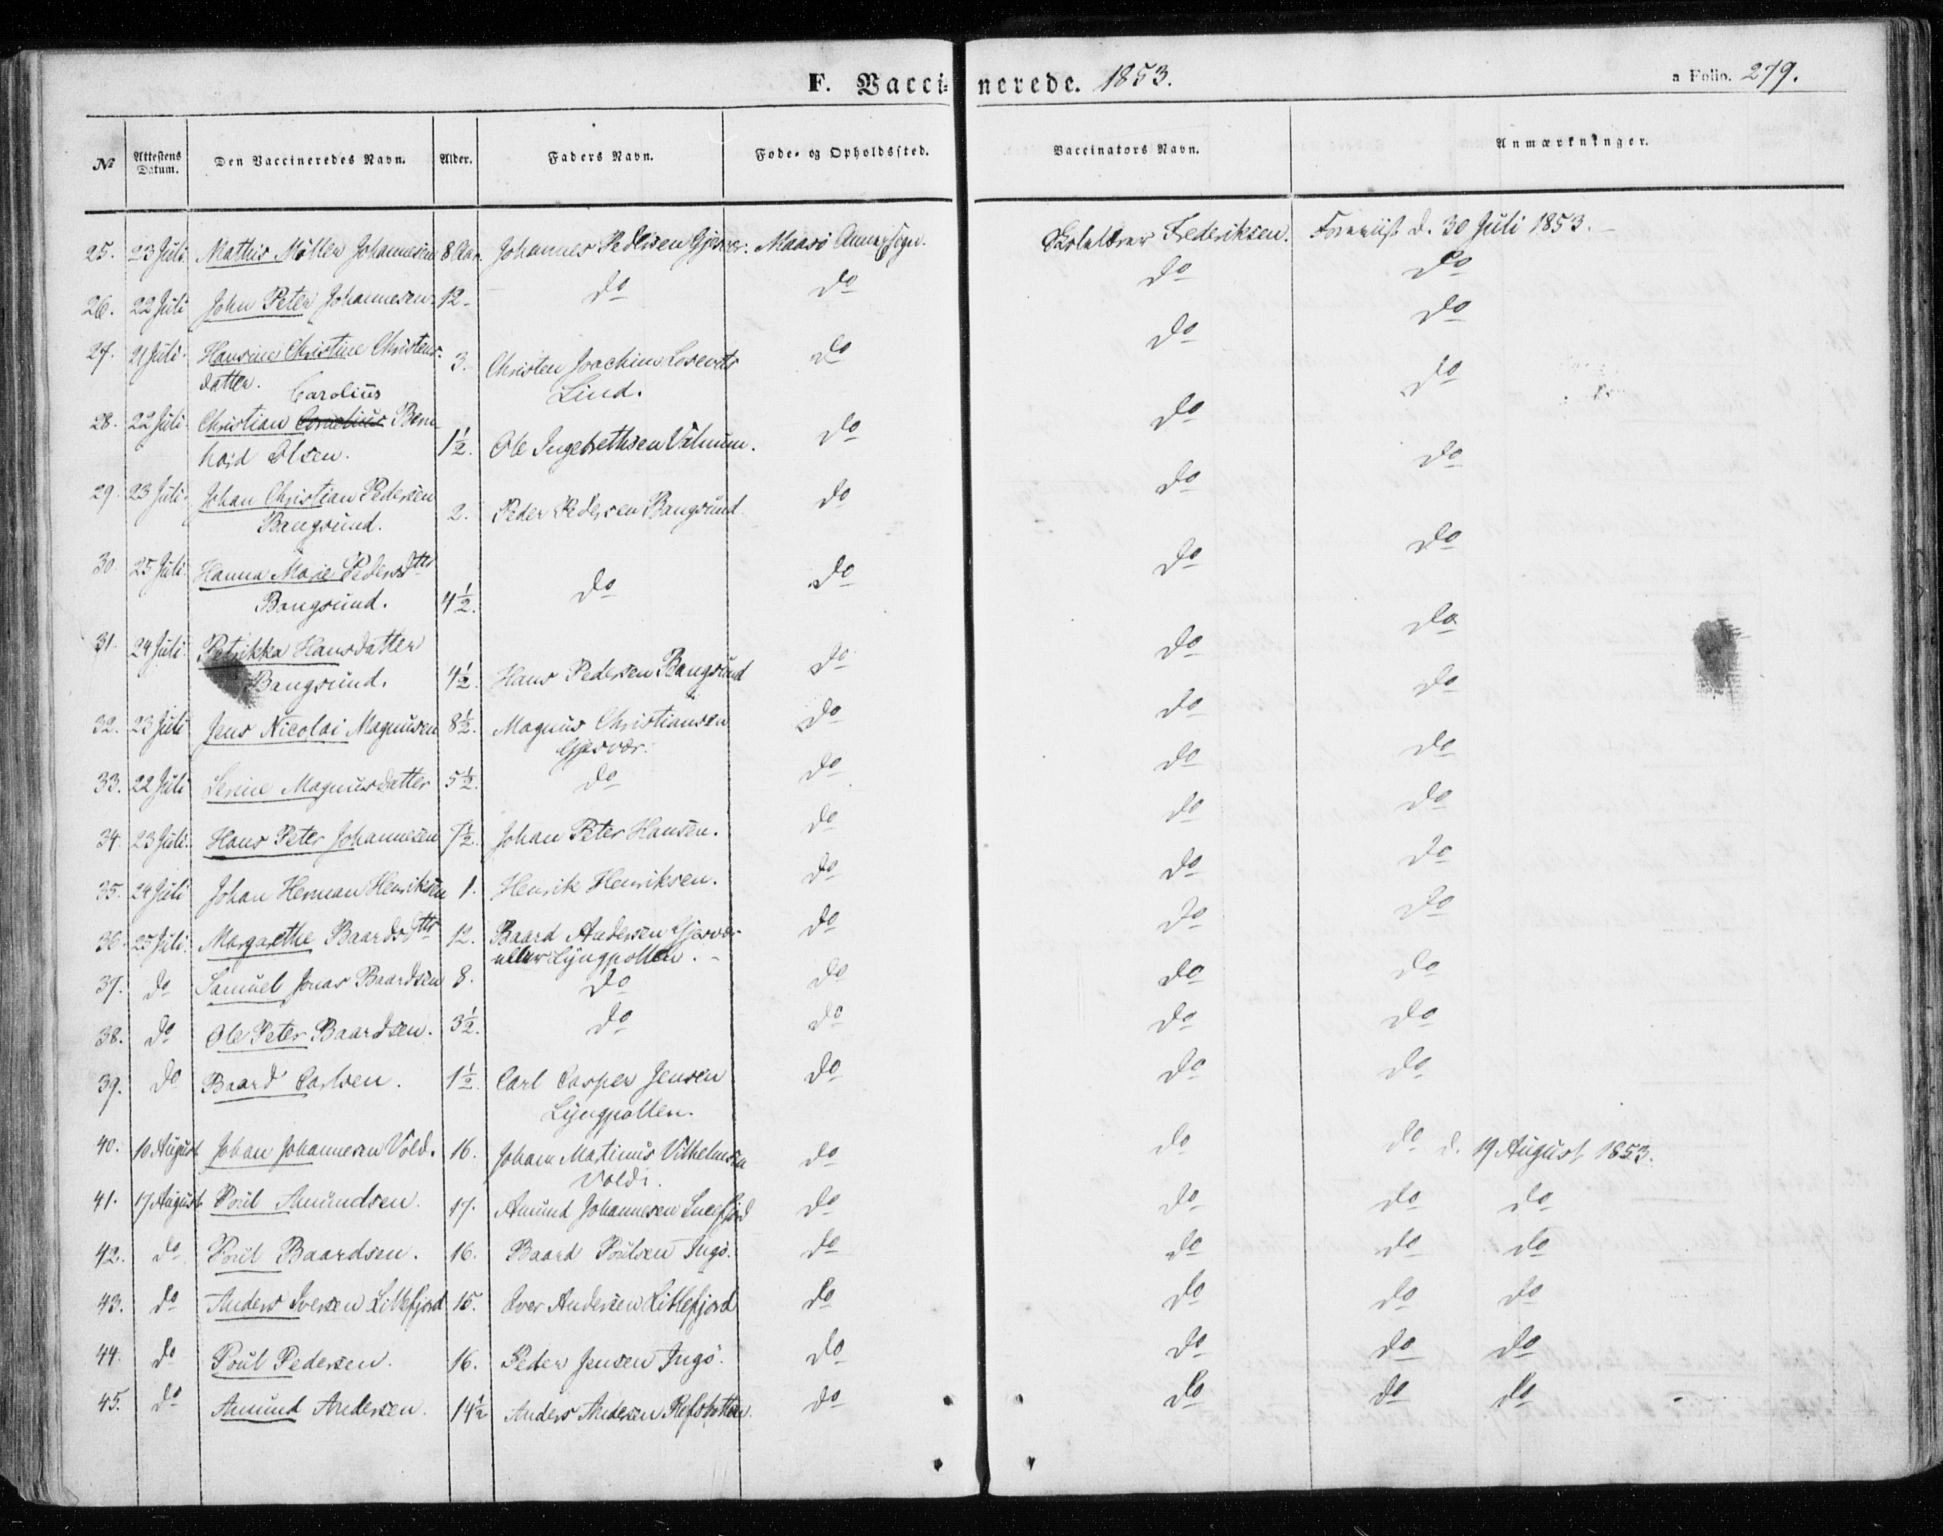 F. Vaccinerede. 1853.
a Folio. 279.
No Attestens Datum. Den Vaccineredes Navn. Alder. Faders Navn. Føde- og Opholdssted. Vaccinators Navn. Anmærkninger.
25. 23 Juli Mathis Möller Johannesen 8 Aar. Johannes Pedersen Gjesvær. Maasö Annexsogn. Skolelærer Frederiksen. Foreviist d. 30 Juli 1853.
26. 22 Juli John Peter Johannesen 12. do do do do
27. 21 Juli. Hansine Christine Christens- 3. Christen Joachim do do do
datter. Lind.
Carolius
28. 22 Juli. Christian Cornelius Bern 1½. Ole Ingebrethsen do do do
hard Olsen.
29. 23 Juli. Johan Christian Pedersen 2. Peder Pedersen Bangsund do do do
Bangsund.
30. 25 Juli. Hanna Marie Pedersdtr 4½. do do do do
Bangsund.
31. 24 Juli. Petrikka Hansdatter 4½. Hans Pedersen Bangsund do do do
Bangsund.
32. 23 Juli Jens Nicolai Magnusen 8½. Magnus Christiansen do do do
Gjesvær.
33. 22 Juli Serine Magnusdatter 5½. do do do do
34. 23 Juli. Hans Peter Johannesen 7½. Johan Peter Hansen. do do do
35. 24 Juli Johan Herman Henriksen 1. Henrik Henriksen. do do do
36. 25 Juli. Margarethe Baardsdtr 12. Baard Andersen Gjesvær do do do
eller Lyngpollen.
37. do Samuel Jonas Baardsen 8. do do do do
38. do Ole Peter Baardsen. 3½. do do do do
39. do Baard Carlsen. 1½. Carl Casper Jensen do do do
Lyngpollen.
40. 10 August Johan Johannesen Vold. 16. Johan Martinus Vilhelmsen do do do d. 19 August 1853.
Vold.
41. 17 August Poul Amundsen. 17. Amund Johannesen do do do do
42. do Poul Baardsen. 16. Baard Poulsen Ingö. do do do do
43. do Anders Iversen Lillefjord 15. Iver Andersen Lillefjord do do do do
44. do Poul Pedersen. 16. Peder Jensen Ingö. do do do do
45. do Amund Andersen. 14½ Anders Andersen do do do do